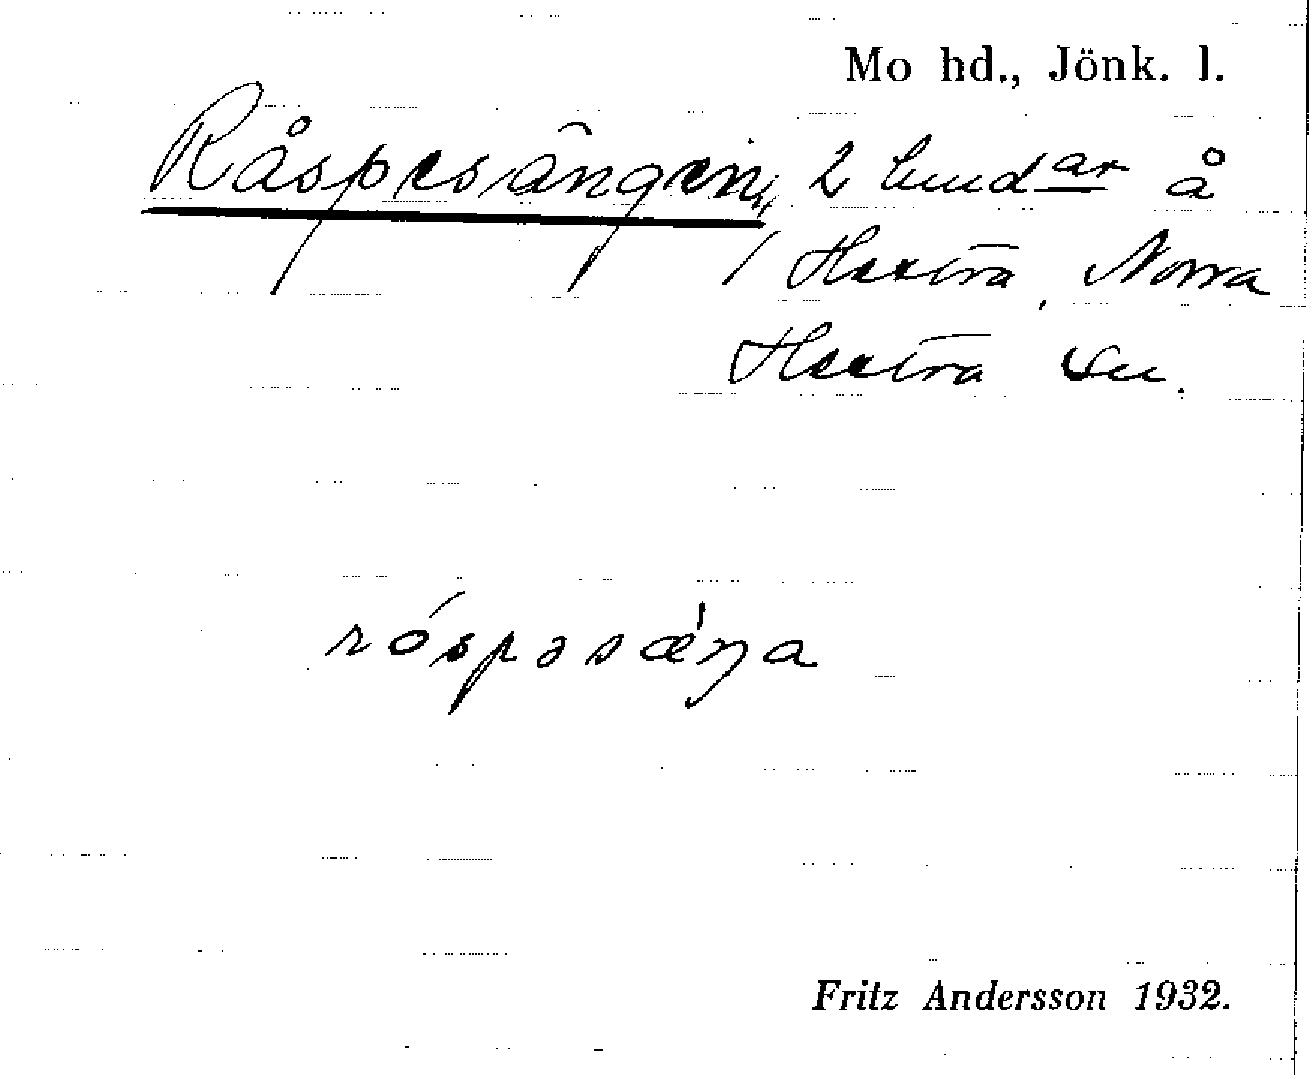 Mo hd., Jönk. l.
Råspesängen, 2 lindar å
Hestra, Norra
Hestra sn.
róspəsǽŋa
Fritz Andersson 1932.